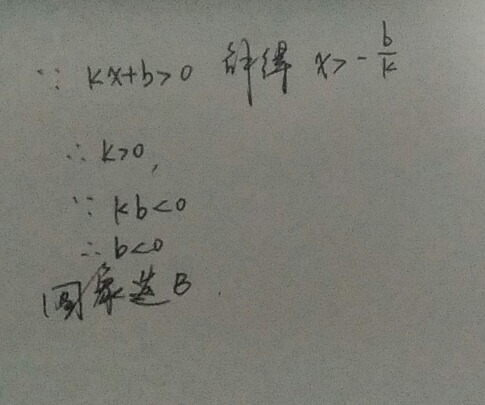 ∵ kx+b>0 解得 x>-b/k
∴ k>0,
∵ kb<0
∴ b<0
图象选B.